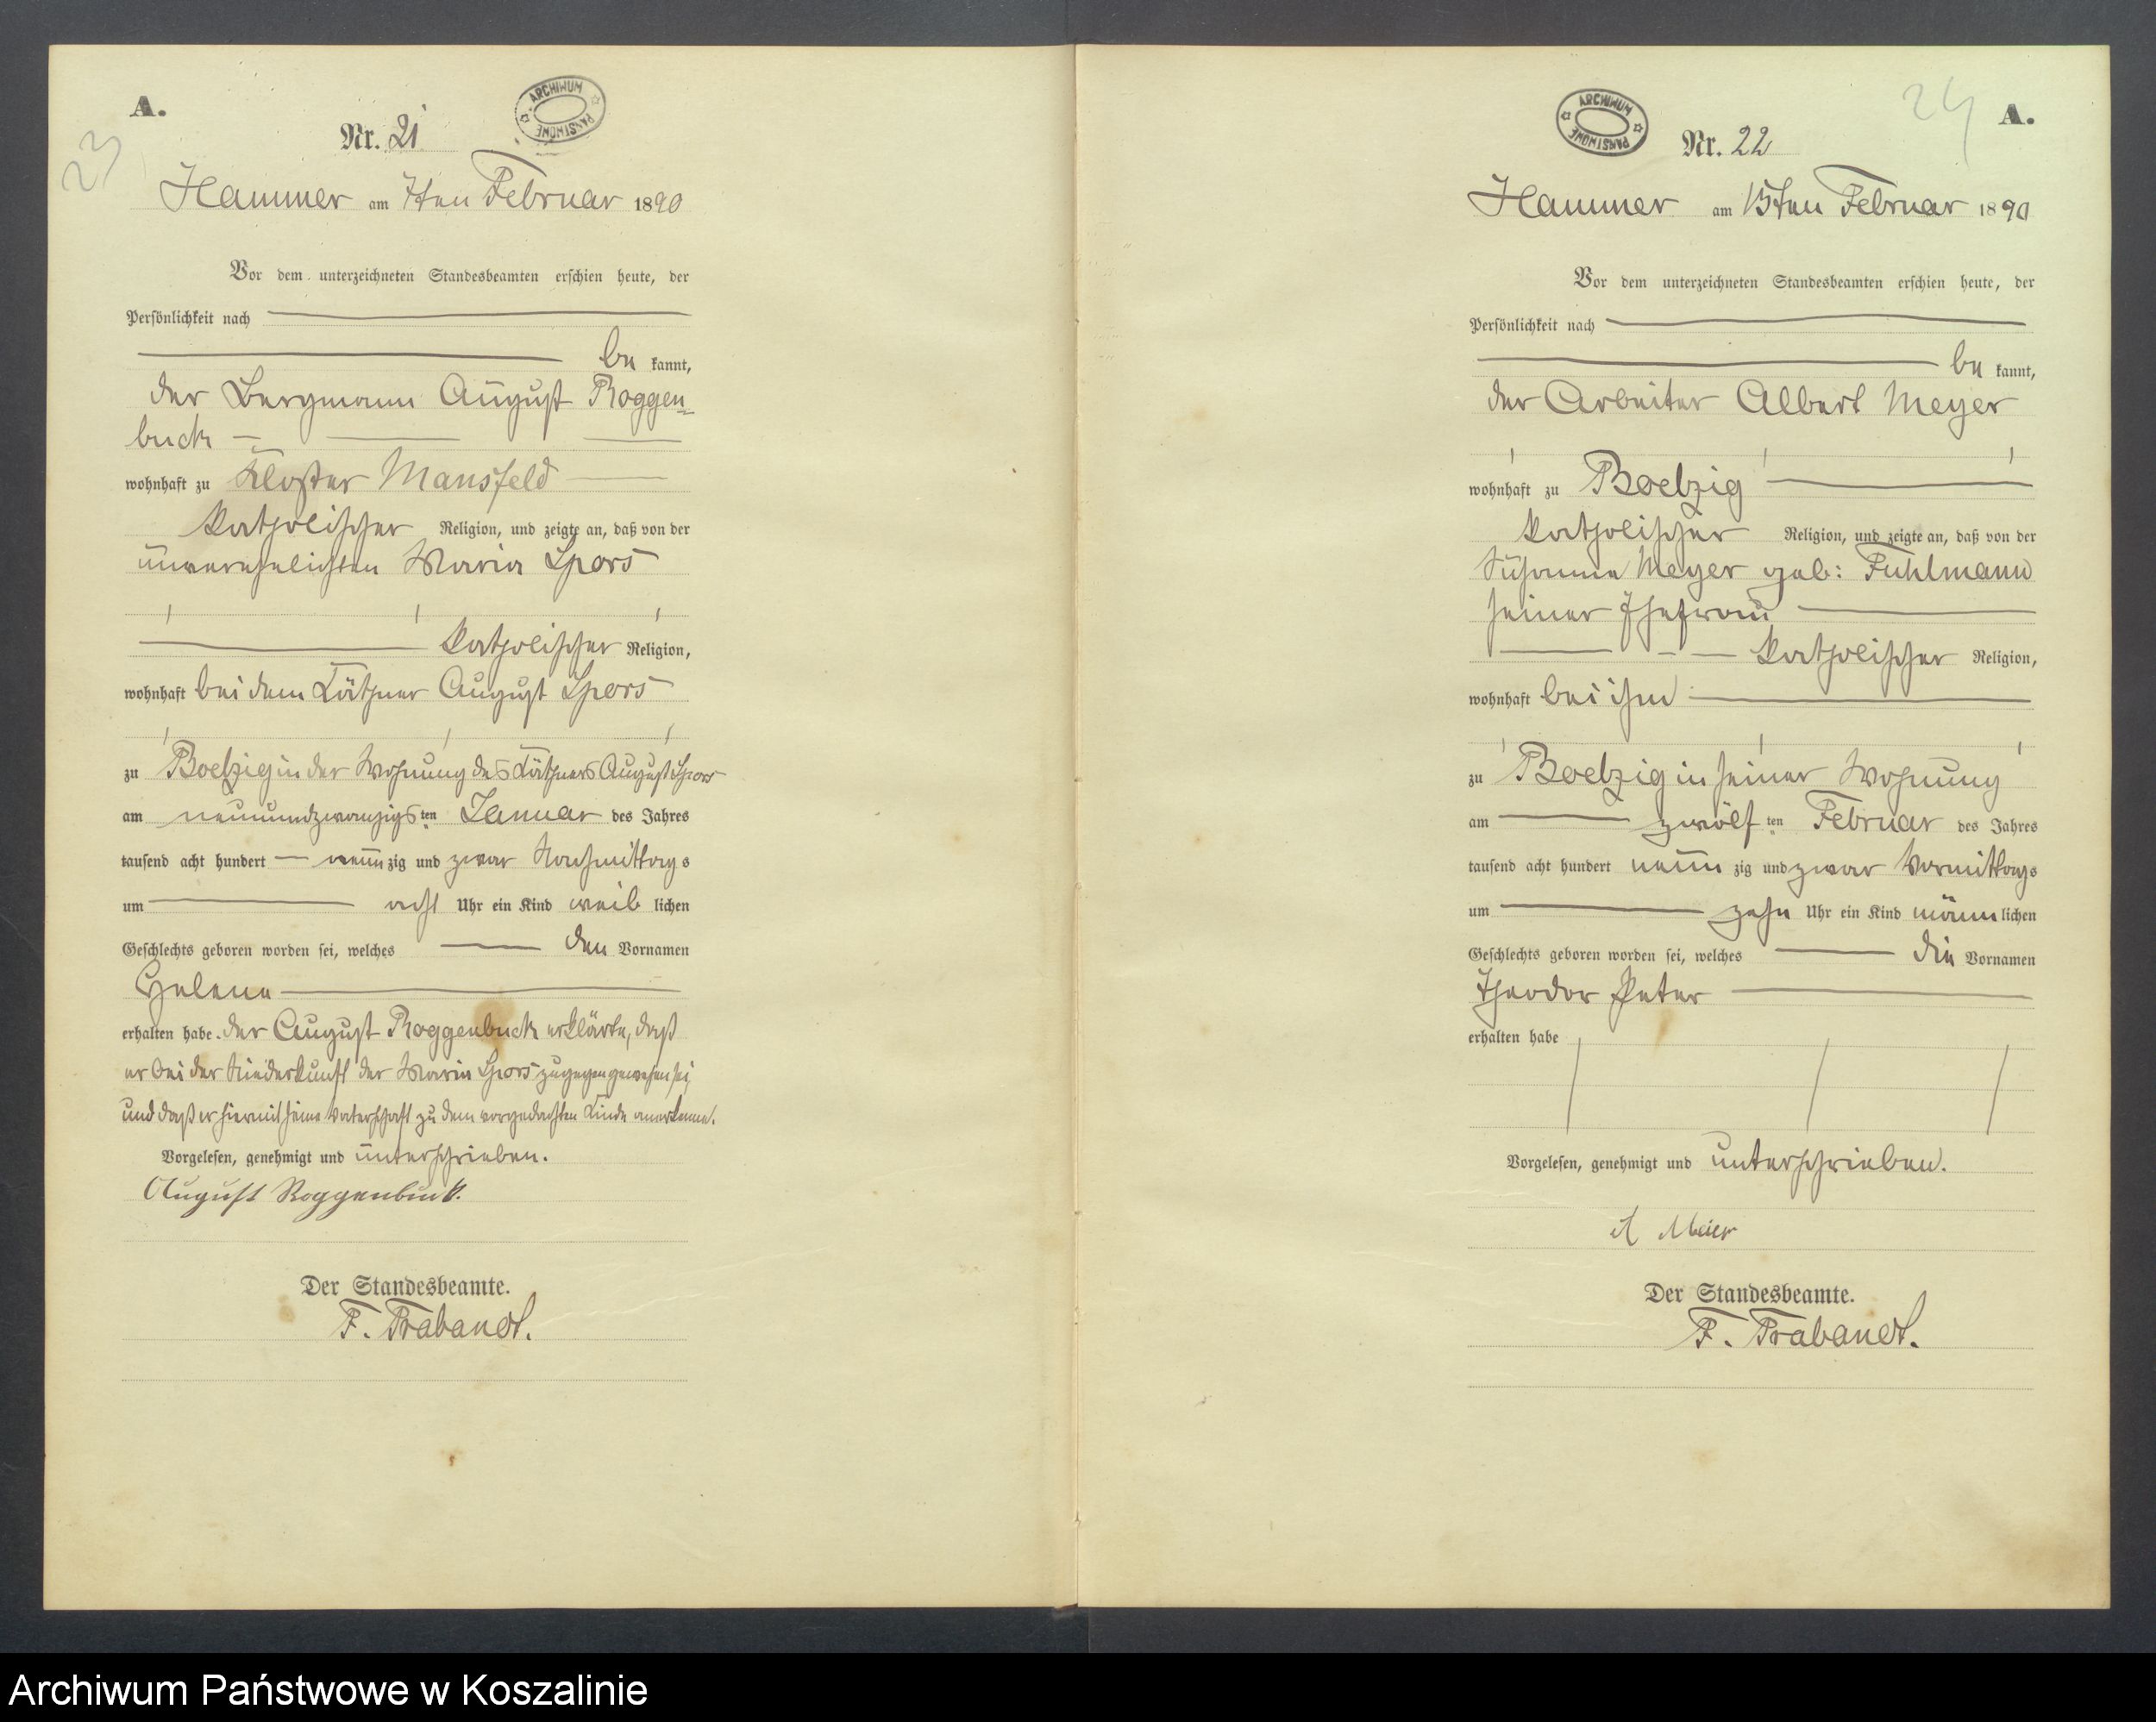 A.
23
Nr. 21
ARCHIWUM PAŃSTWOWE
Hammer am 7ten Februar 1890
Vor dem unterzeichneten Standesbeamten erschien heute, der
Persönlichkeit nach
be kannt,
der Bergmann August Roggen-
buck
wohnhaft zu Kloster Mansfeld
katholischer Religion, und zeigte an, daß von der
unverehelichten Maria Spors
katholischer Religion,
wohnhaft bei dem Käthner August Spors
zu Boelzig in der Wohnung des Käthners August Spors
am neunundzwanzigsten Januar des Jahres
tausend acht hundert neunzig und zwar Nachmittags
um acht Uhr ein Kind weiblichen
Geschlechts geboren worden sei, welches den Vornamen
Helene
erhalten habe. Der August Roggenbuck erklärte, daß
er bei der Niederkunft der Maria Spors zugegen gewesen sei,
und daß er hiermit seine Vaterschaft zu dem vorgedachten Kinde anerkenne.
Vorgelesen, genehmigt und unterschrieben.
August Roggenbuck.
Der Standesbeamte.
F. Trabandt.
24
A.
ARCHIWUM PAŃSTWOWE
Nr. 22
Hammer am 15ten Februar 1890
Vor dem unterzeichneten Standesbeamten erschien heute, der
Persönlichkeit nach
be kannt,
der Arbeiter Albert Meyer
wohnhaft zu Boelzig
katholischer Religion, und zeigte an, daß von der
Susanna Meyer geb: Fuhlmann
seiner Ehefrau
katholischer Religion,
wohnhaft bei ihm
zu Boelzig in seiner Wohnung
am zwölften Februar des Jahres
tausend acht hundert neunzig und zwar Vormittags
um zehn Uhr ein Kind männlichen
Geschlechts geboren worden sei, welches die Vornamen
Theodor Peter
erhalten habe
Vorgelesen, genehmigt und unterschrieben.
A Meier
Der Standesbeamte.
F. Trabandt.
Archiwum Państwowe w Koszalinie